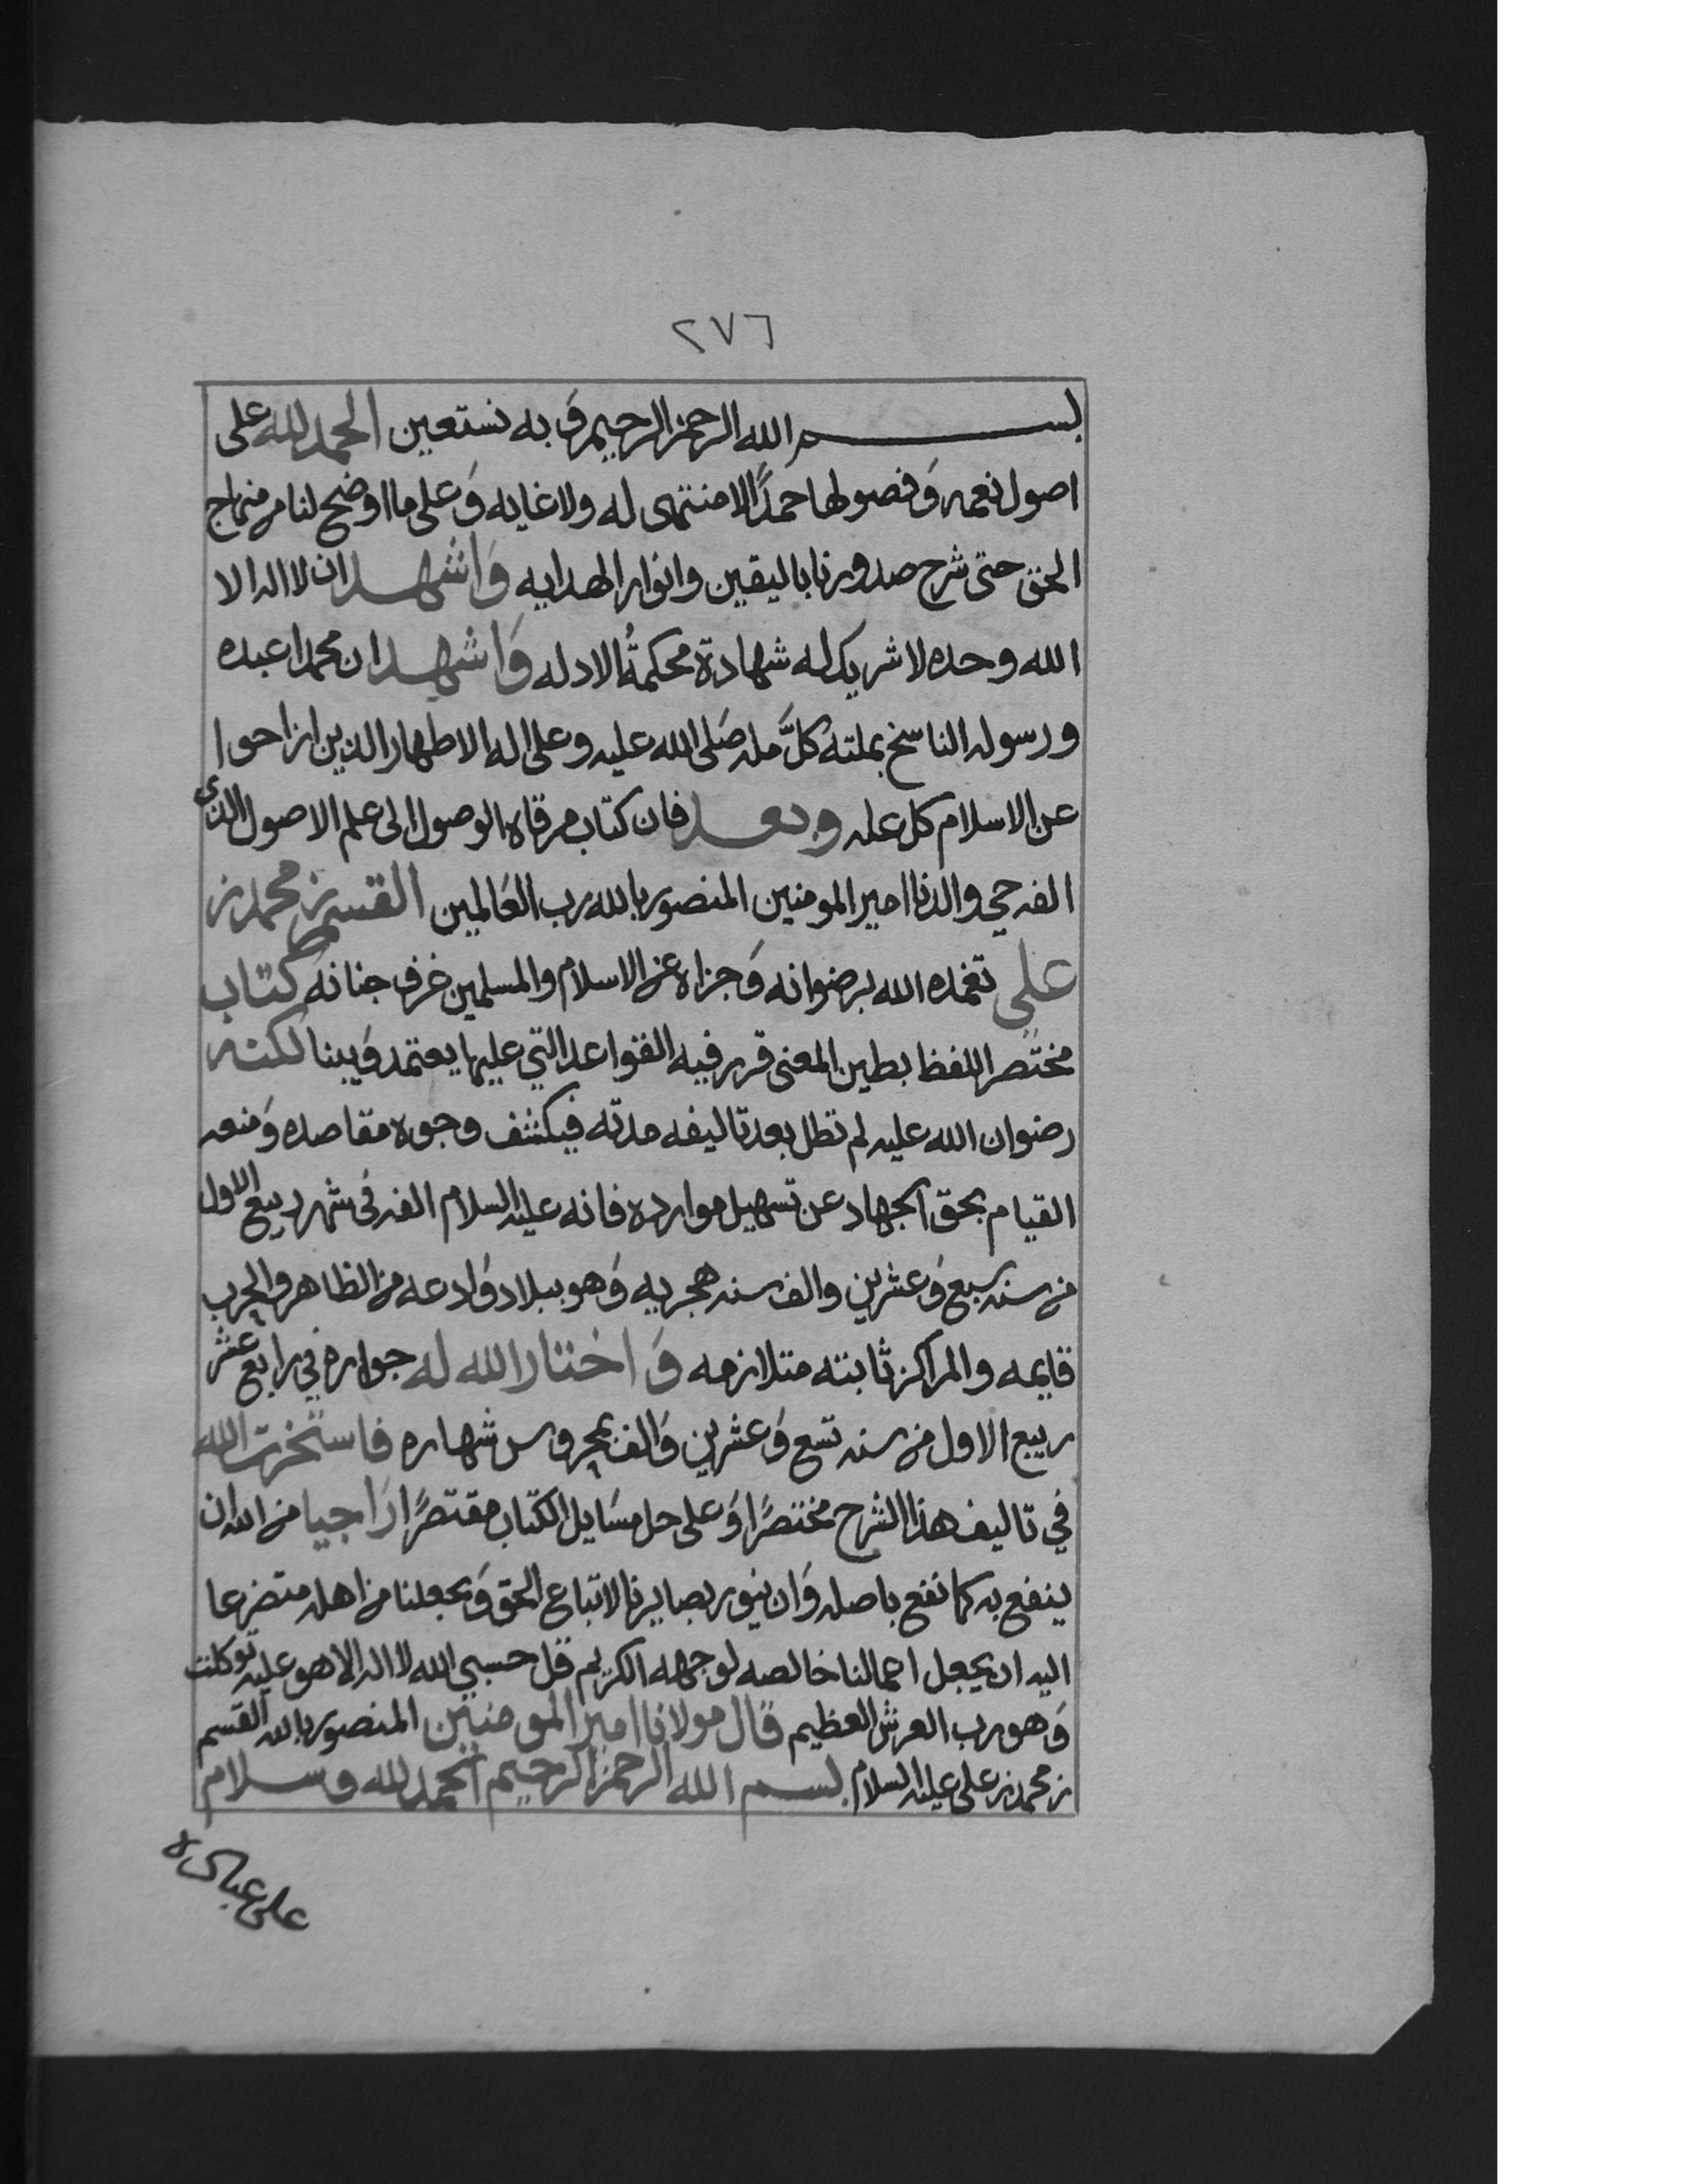 ٢٧٦
بسم الله الرحمن الرحيم وَ به نستعين الحمد لله على
اصول نعمه وَفصولها حمدًا لا منتهى له ولا غايه وَعلى ما اوضح لنا من منهاج
الحق حتى شرح صدورنا باليقين وانوار الهدايه وَاشهد ان لا اله الا
الله وحده لا شريك له شهادة محكمةُ الادله وَاشهد ان محمدا عبده
ورسوله الناسخ بملته كلَّ مله صَلى الله عليه وعلى اله الاطهار الذين ازاحوا
عن الاسلام كل عله وبعد فان كتاب مرقاه الوصول الى علم الاصول الذي
الفه حي والدنا امير المومنين المنصور بالله رب العَالمين القسم بن محمد بن
علي تغمده الله برضوانه وَجزاه عن الاسلام والمسلمين غرف جنانه كتاب
مختصر اللفظ بطين المعنى قرر فيه القواعد التي عليها يعتمد وَيبنا لكنه
رضوان الله عليه لم تطل بعد تاليفه مدته فيكشف وجوه مقاصده وَمنعه
القيام بحق الجهاد عن تسهيل موارده فانه عليه السلام الفه في شهر ربيع الاول
من سنه سبع وَعشرين والف سنه هجريه وَهو ببلاد وَادعه من الظاهر والحرب
قايمه والمراكز ثابته متلازمه وَاختار الله له جواره في رابع عشر
ربيع الاول من سنه تسع وَعشرين وَالف بمحروس شهاره فاستخرت الله
في تاليف هذا الشرح مختصرًا وَعلى حل مسَايل الكتاب مقتصرًا رَاجيا من الله ان
ينفع به كما نفع باصله وَان ينور بصايرنا لاتباع الحق وَيجعلنا من اهله متضرعا
اليه ان يجعل اعمالنا خالصه لوجهه الكريم قل حسبي الله لا اله الا هو عليه توكلت
وَهو رب العرش العظيم قال مولانا امير المومنين المنصور بالله القسم
بن محمد بن علي عليه السلام بسم الله الرحمن الرحيم الحمد لله وسلام
على عباده